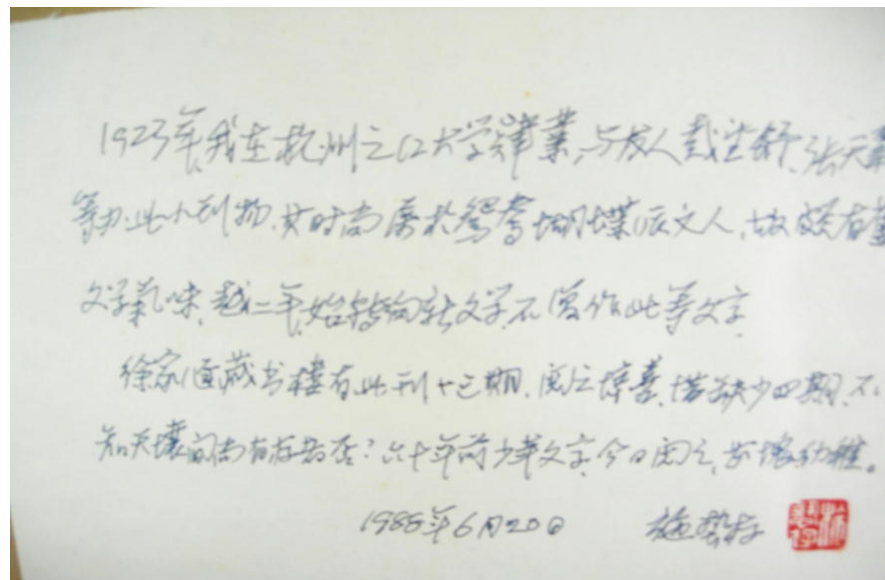 1923年,我在杭州之江大学肄業,与友人戴望舒、张天
等办此小刊物,其时尚属於鸳鸯蝴蝶派文人,故颇有
文学氣味,越二年,始转向新文学,不复作此等文字
徐家汇藏书楼有此刊十三期,阅之惊喜,惜缺少四期,不
知天壤间尚有存者否?六十年前少年文字,今日阅之,幼稚。
1985年6月20日 施蛰存